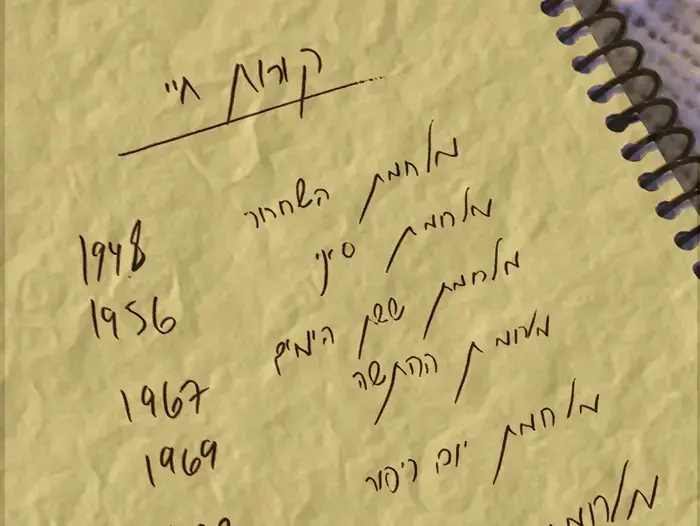 קורות חיי
מלחמת השחרור 1948
מלחמת סיני 1956
מלחמת ששת הימים 1967
מלחמת ההתשה 1969
מלחמת יום כיפור
מלחמת